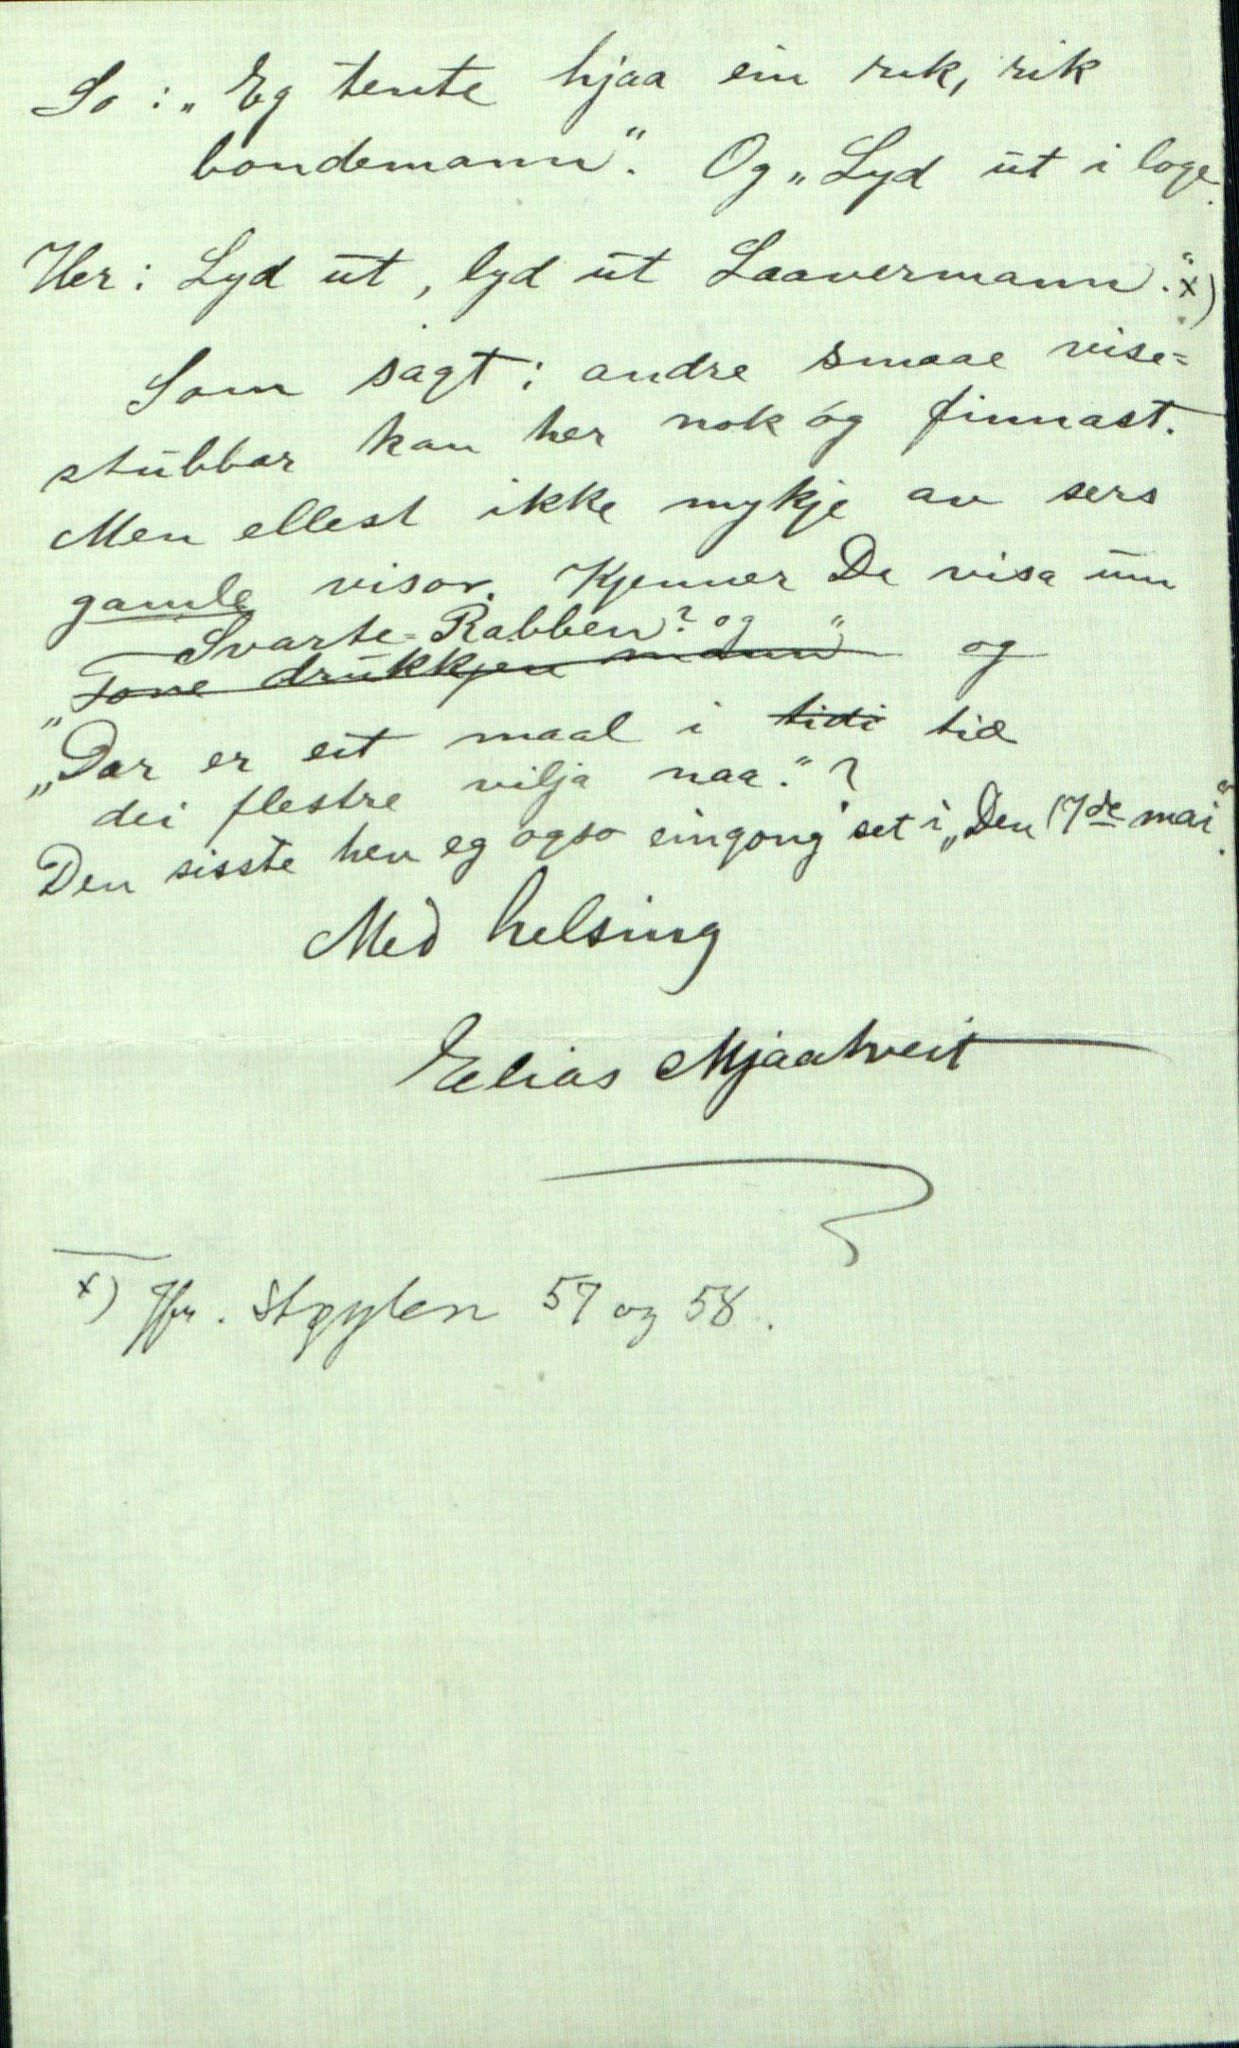 So: „Eg tente hjaa ein rik, rik
bondemann“. Og „Lyd ut i loge.
Her: Lyd ut, lyd ut Laavermann.“ x)
Som sagt; andre smaae vise=
stubbar kan her nok óg finnast.
Men ellest ikke mykje av sers
gamle visor. Kjenner De visa um
Svarte-Rabben? og
„Tone drukkjen mann“ og
„Dar er eit maal i tidi tid
dei flestre vilja naa.“?
Den sisste hev eg ogso eingong set i „Den 17de mai“.
Med helsing
Elias Mjaatveit
x) Jfr. Støylen 57 og 58.